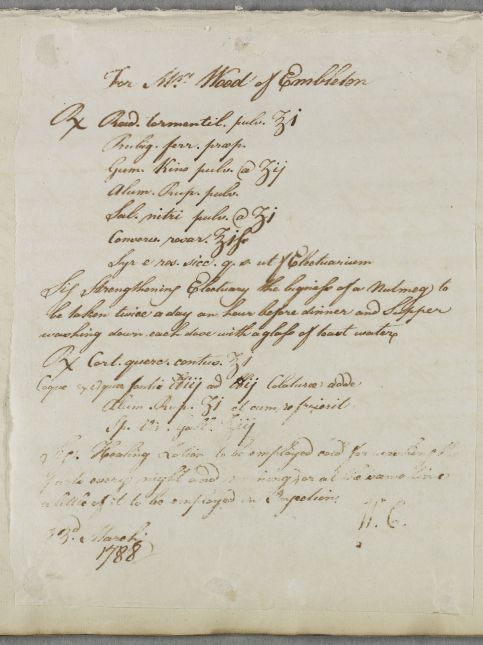 For Mrs Wood of Embleton
Rx Rad. tormentil. pulv. ʒi
Rubig. ferr. præp.
Gum. Kino pulv. @ ʒij
Alum. Rup. pulv.
Sal. nitri pulv. @ ʒi
Conserv. rosar. ʒiſs
Syr e ros. sicc. q. s ut f Electuarium
Sig Strengthening Electuary the bigness of a Nutmeg to
be taken twice a day an hour before dinner and Supper
washing down each dose with a glass of toast water
Rx Cort. querc. contus. ʒi
Coque ex Aquæ fontis ad Colaturæ adde
Alum Rup. ʒi et cum refrixeril
Sp. Vin. gall.
Sig. Healing Lotion to be employed cold for
every night and morning or at the same time
a little of it to be employed in
March
1788
W. C.